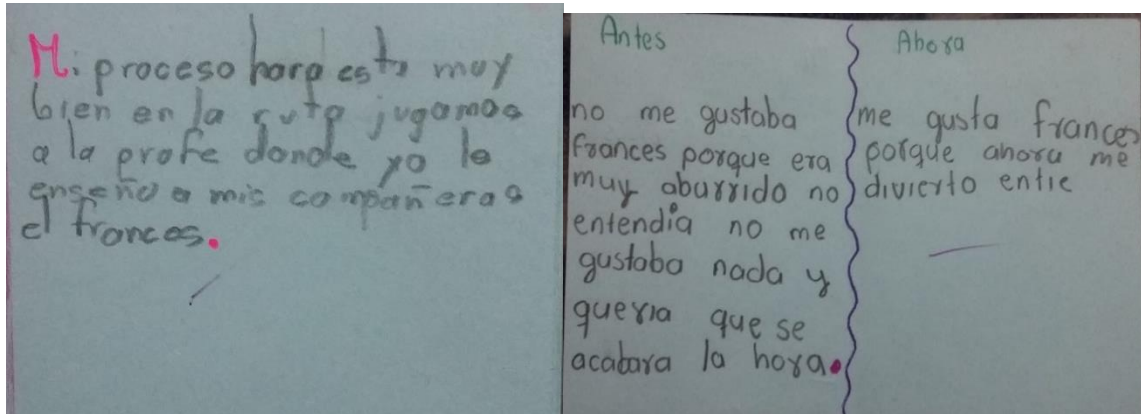 Mi proceso hora esta muy
bien en la ruta jugamos
a la profe donde yo le
enseño a mis compañeras
el frances.
Antes
no me gustaba
frances porque era
muy aburrido no
entendia no me
gustaba nada y
queria que se
acabara la hora.
Ahora
me gusta frances
porque ahora me
divierto entie